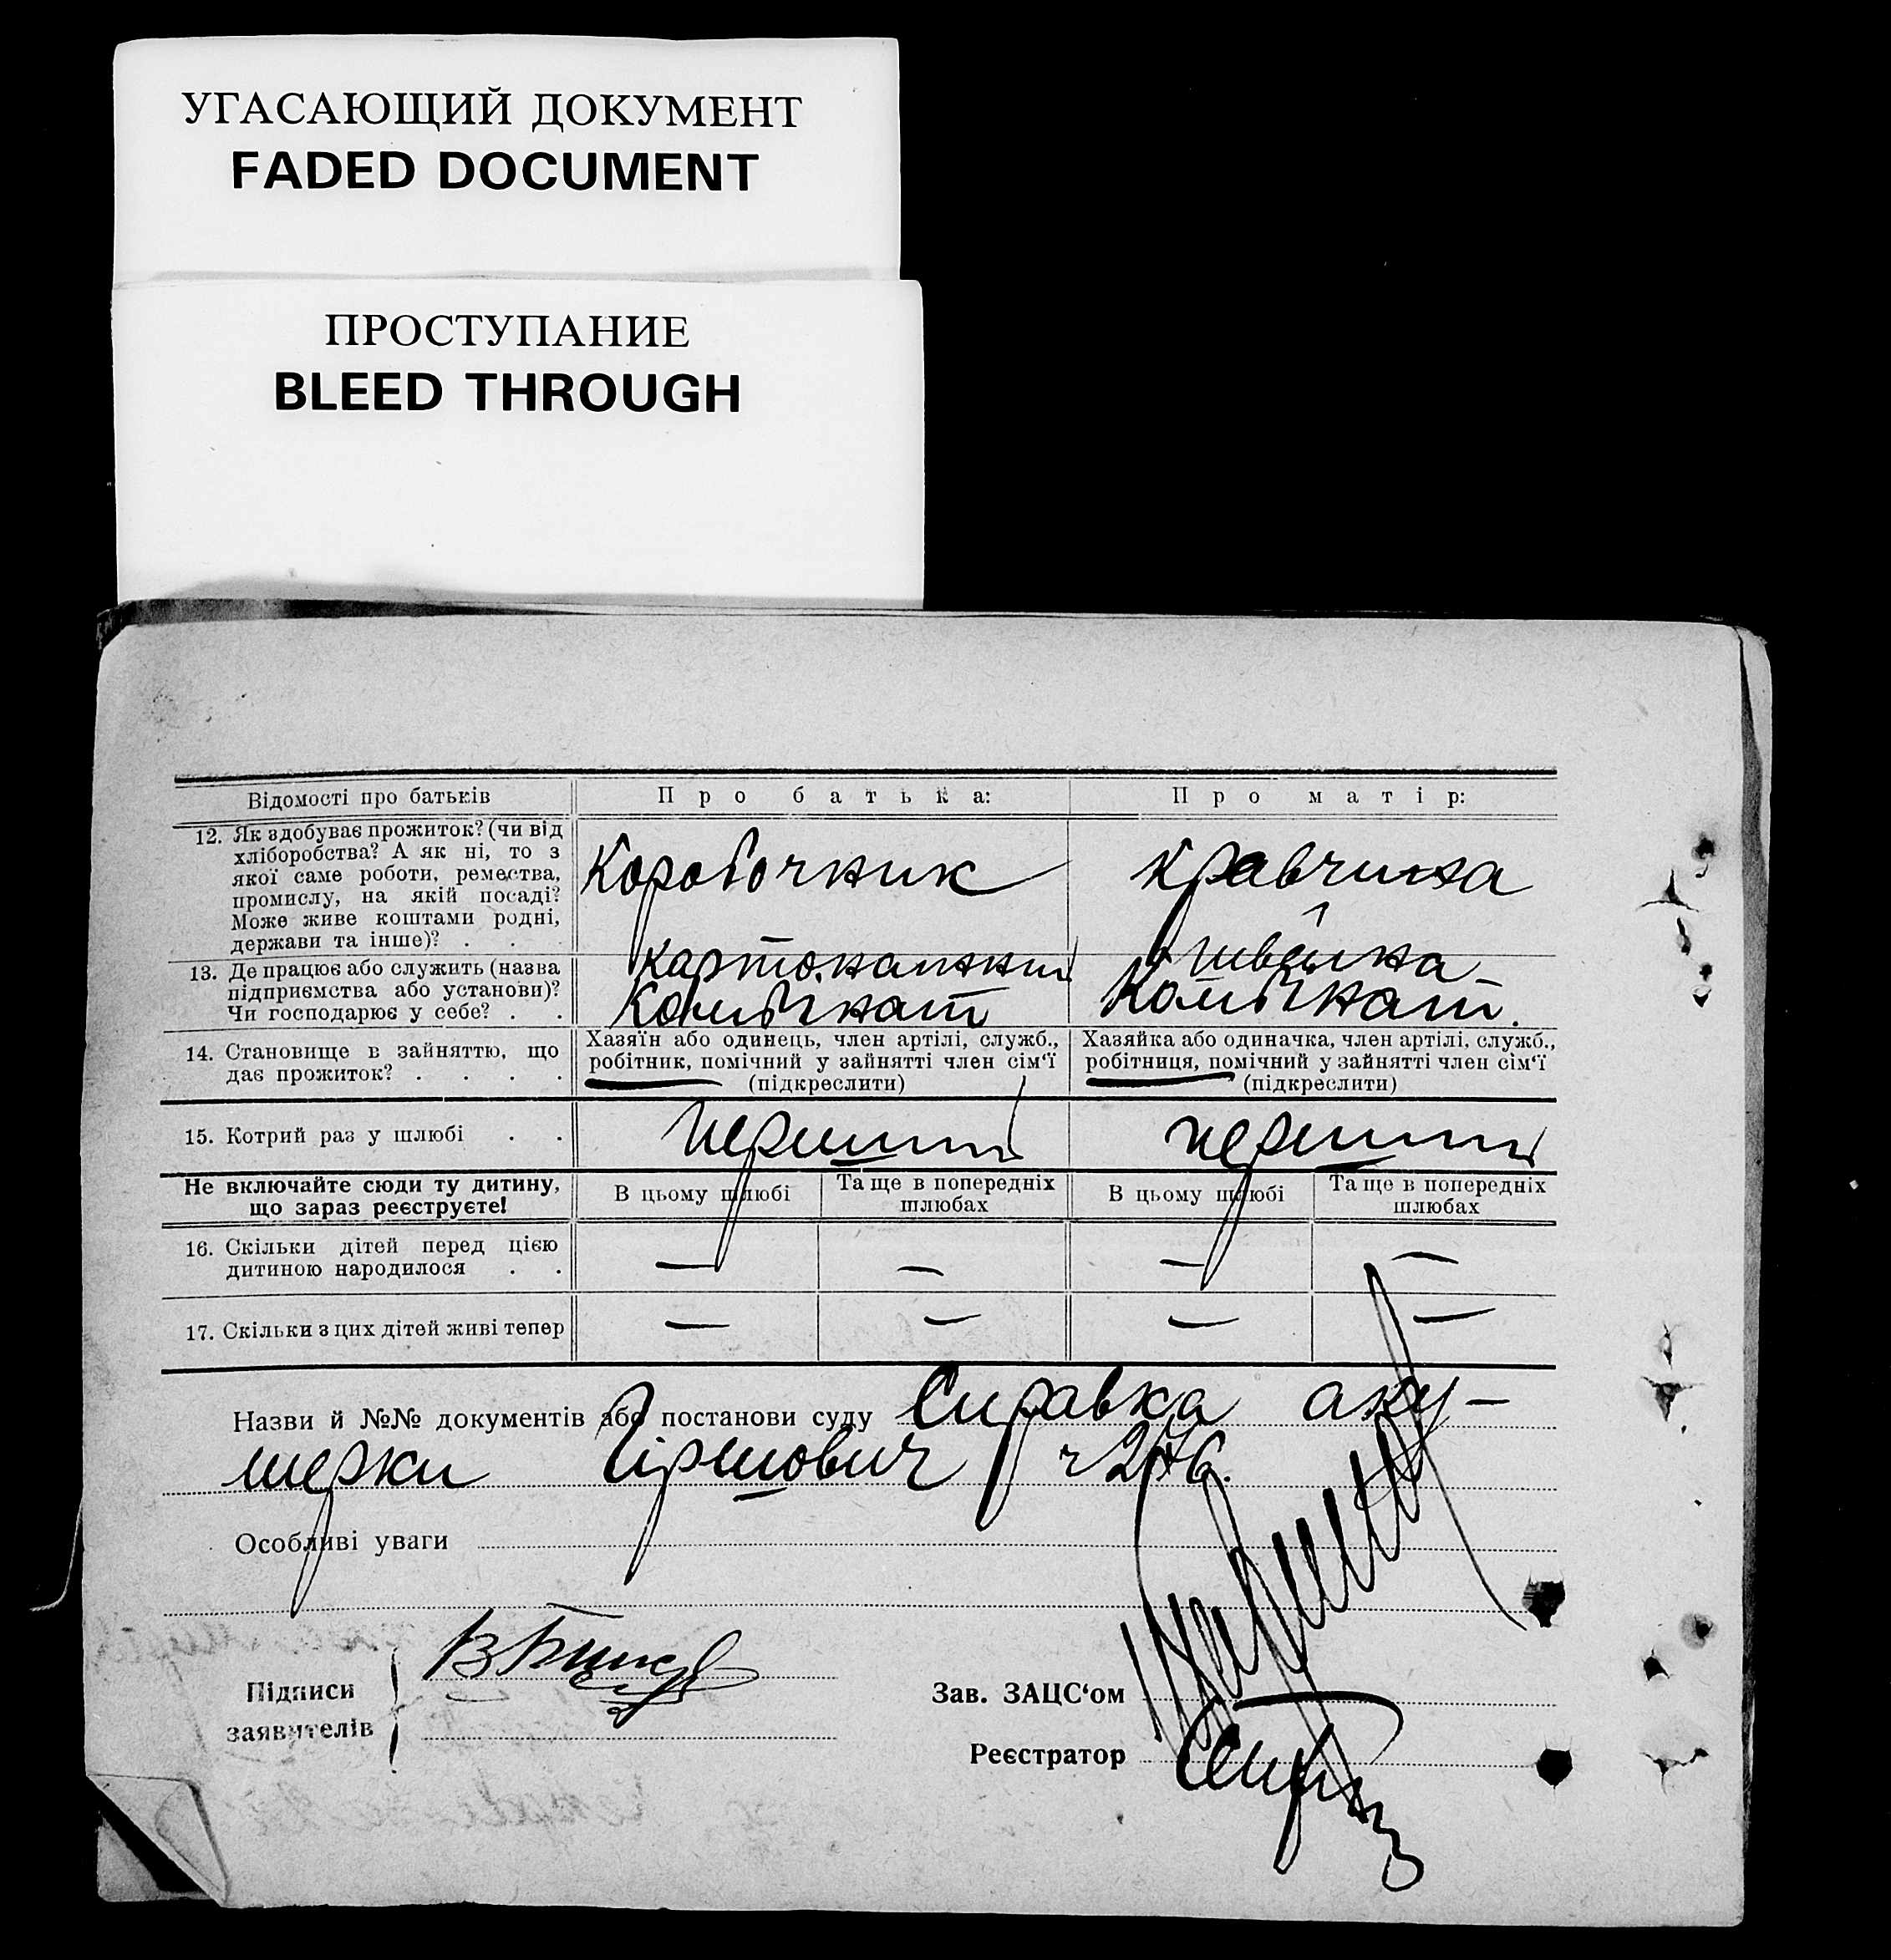 УГАСАЮЩИЙ ДОКУМЕНТ
FADED DOCUMENT
ПРОСТУПАНИЕ
BLEED THROUGH
Відомості про батьків
Про батька:
Про матір:
12. Як здобуває прожиток? (чи від
хліборобства? А як ні, то з
якої саме роботи, ремества,
промислу, на якій посаді?
Може живе коштами родні,
держави та інше)? . .
Коробочник
кравчиха
13. Де працює або служить (назва
підприємства або установи)?
Чи господарює у себе? . .
картонажний
Комбінат
швейна
Комбінат.
14. Становище в зайняттю, що
дає прожиток? . . . .
Хазяїн або одинець, член артілі, служб.,
робітник, помічний у зайнятті член сім'ї
(підкреслити)
Хазяйка або одиначка, член артілі, служб.,
робітниця, помічний у зайнятті член сім'ї
(підкреслити)
15. Котрий раз у шлюбі . .
перший
перший
Не включайте сюди ту дитину,
що зараз реєструєте!
В цьому шлюбі
Та ще в попередніх
шлюбах
В цьому шлюбі
Та ще в попередніх
шлюбах
16. Скільки дітей перед цією
дитиною народилося . .
— — — —
17. Скільки з цих дітей живі тепер
— — — —
Назви й №№ документів або постанови суду Справка аку-
шерки Гіршович
Особливі уваги
Підписи
заявителів
Зав. ЗАЦС'ом
Реєстратор